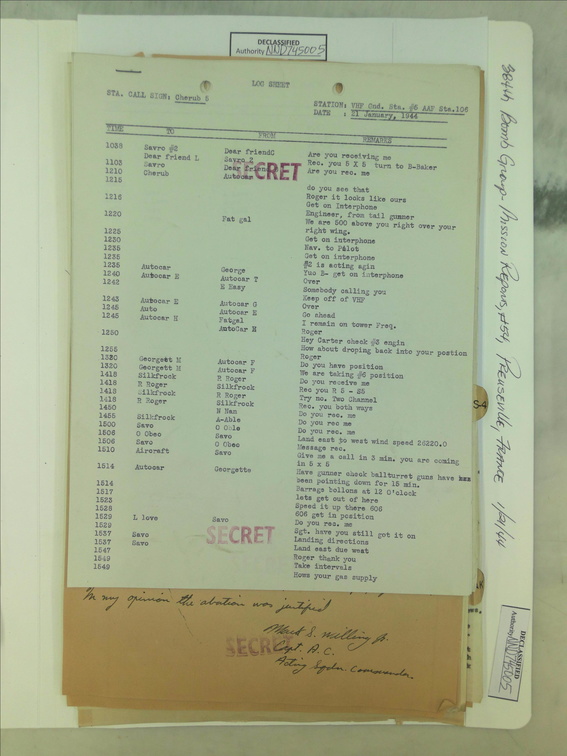 DECLASSIFIED
Authority NND745005
LOG SHEET
STA. CALL SIGN: Cherub 5
STATION: VHF Gnd. Sta. #5 AAF Sta.106
DATE : 21 January, 1944
TIME TO FROM REMARKS
1058 Savro #2 Dear friendC Are you receiving me
Dear friend L Savro 2 Rec. you 5 X 5 turn to B-Baker
1102 Savro Dear friend Are you rec. me
1210 Cherub Autocar
1215 do you see that
Roger it looks like ours
1216 Get on Interphone
Engineer, from tail gunner
1220 Fat gal We are 500 above you right over your
right wing.
1225 Get on interphone
1230 Nav. to Pilot
1235 Get on interphone
1235 #2 is acting agin
1235 Autocar George Yuo B- get on interphone
1240 Autocar E Autocar T Over
1242 E Easy Somebody calling you
Keep off of VHF
1243 Autocar E Autocar G Over
1245 Auto Autocar E Go ahead
1245 Autocar H Fatgel I remain on tower Freq.
AutoCar H Roger
1250 Hey Carter check #3 engin
How about droping back into your postion
1255 Roger
1320 Georgett M Autocar F Do you have position
1320 Georgett M Autocar F We are taking #6 position
1418 Silkfrock R Roger Do you receive me
1418 R Roger Silkfrock Rec you R 5 - S5
1418 Silkfrock R Roger Try no. Two Channel
1418 R Roger Silkfrock Rec. you both ways
1450 N Nan Do you rec. me
1455 Silkfrock A-Able Do you rec me
1500 Savo O Oble Do you rec. me
1506 O Oboe Savo Land east to west wind speed 26220.0
1506 Savo O Oboe Message rec.
1510 Aircraft Savo Give me a call in 3 min. you are coming
in 5 x 5
1514 Autocar Georgette Have gunner check ballturret guns have
been pointing down for 15 min.
1514 Barrage bollons at 12 O'clock
1517 lets get out of here
1523 Speed it up there 606
1528 606 get in position
1529 L love Savo Do you rec. me
1529 Sgt. have you still got it on
1537 Savo Landing directions
1537 Savo Land east due west
1547 Roger thank you
1549 Take intervals
1549 Hows your gas supply
SECRET
SECRET
In my opinion the abortion was justified
SECRET
Capt. A.C.
Acting Sqdn Commander
384th Bomb Group - Mission Reports, #54, 1/21/44
S-4
DECLASSIFIED
Authority NND745005